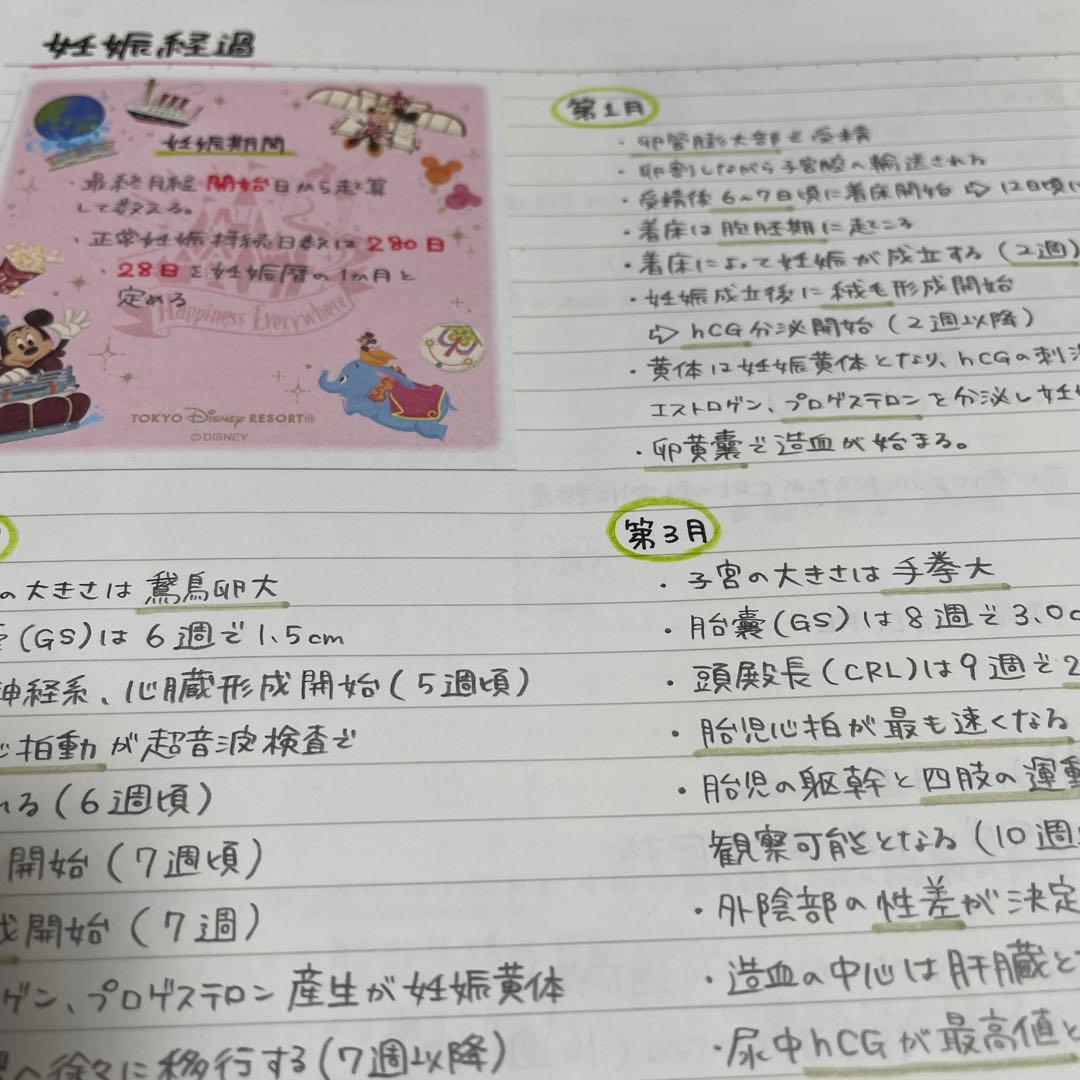 妊娠経過
妊娠期間
・最終月経開始日から起算
して数える。
・正常妊娠持続日数は280日
・28日を妊娠暦の1カ月と
定める
Happiness Everywhere
TOKYO Disney RESORT®
©DISNEY
第1月
・卵管膨大部で受精
・卵割しながら子宮腔へ輸送される
・受精後6〜7日頃に着床開始⇨12日頃に
・着床は胞胚期に起こる
・着床によって妊娠が成立する(2週)
・妊娠成立後に絨毛形成開始
⇨hCG分泌開始(2週以降)
・黄体は妊娠黄体となり、hCGの刺
エストロゲン、プロゲステロンを分泌し妊
・卵黄嚢で造血が始まる。
の大きさは鵞鳥卵大
(GS)は6週で1.5cm
神経系、心臓形成開始(5週頃)
心拍動が超音波検査で
れる(6週頃)
開始(7週頃)
成開始(7週)
ゲン、プロゲステロン産生が妊娠黄体
へ徐々に移行する(7週以降)
第3月
・子宮の大きさは手拳大
・胎嚢(GS)は8週で3.0c
・頭殿長(CRL)は9週で2
・胎児心拍が最も速くなる
・胎児の躯幹と四肢の運動
観察可能となる(10週
・外陰部の性差が決定
・造血の中心は肝臓と
・尿中hCGが最高値と